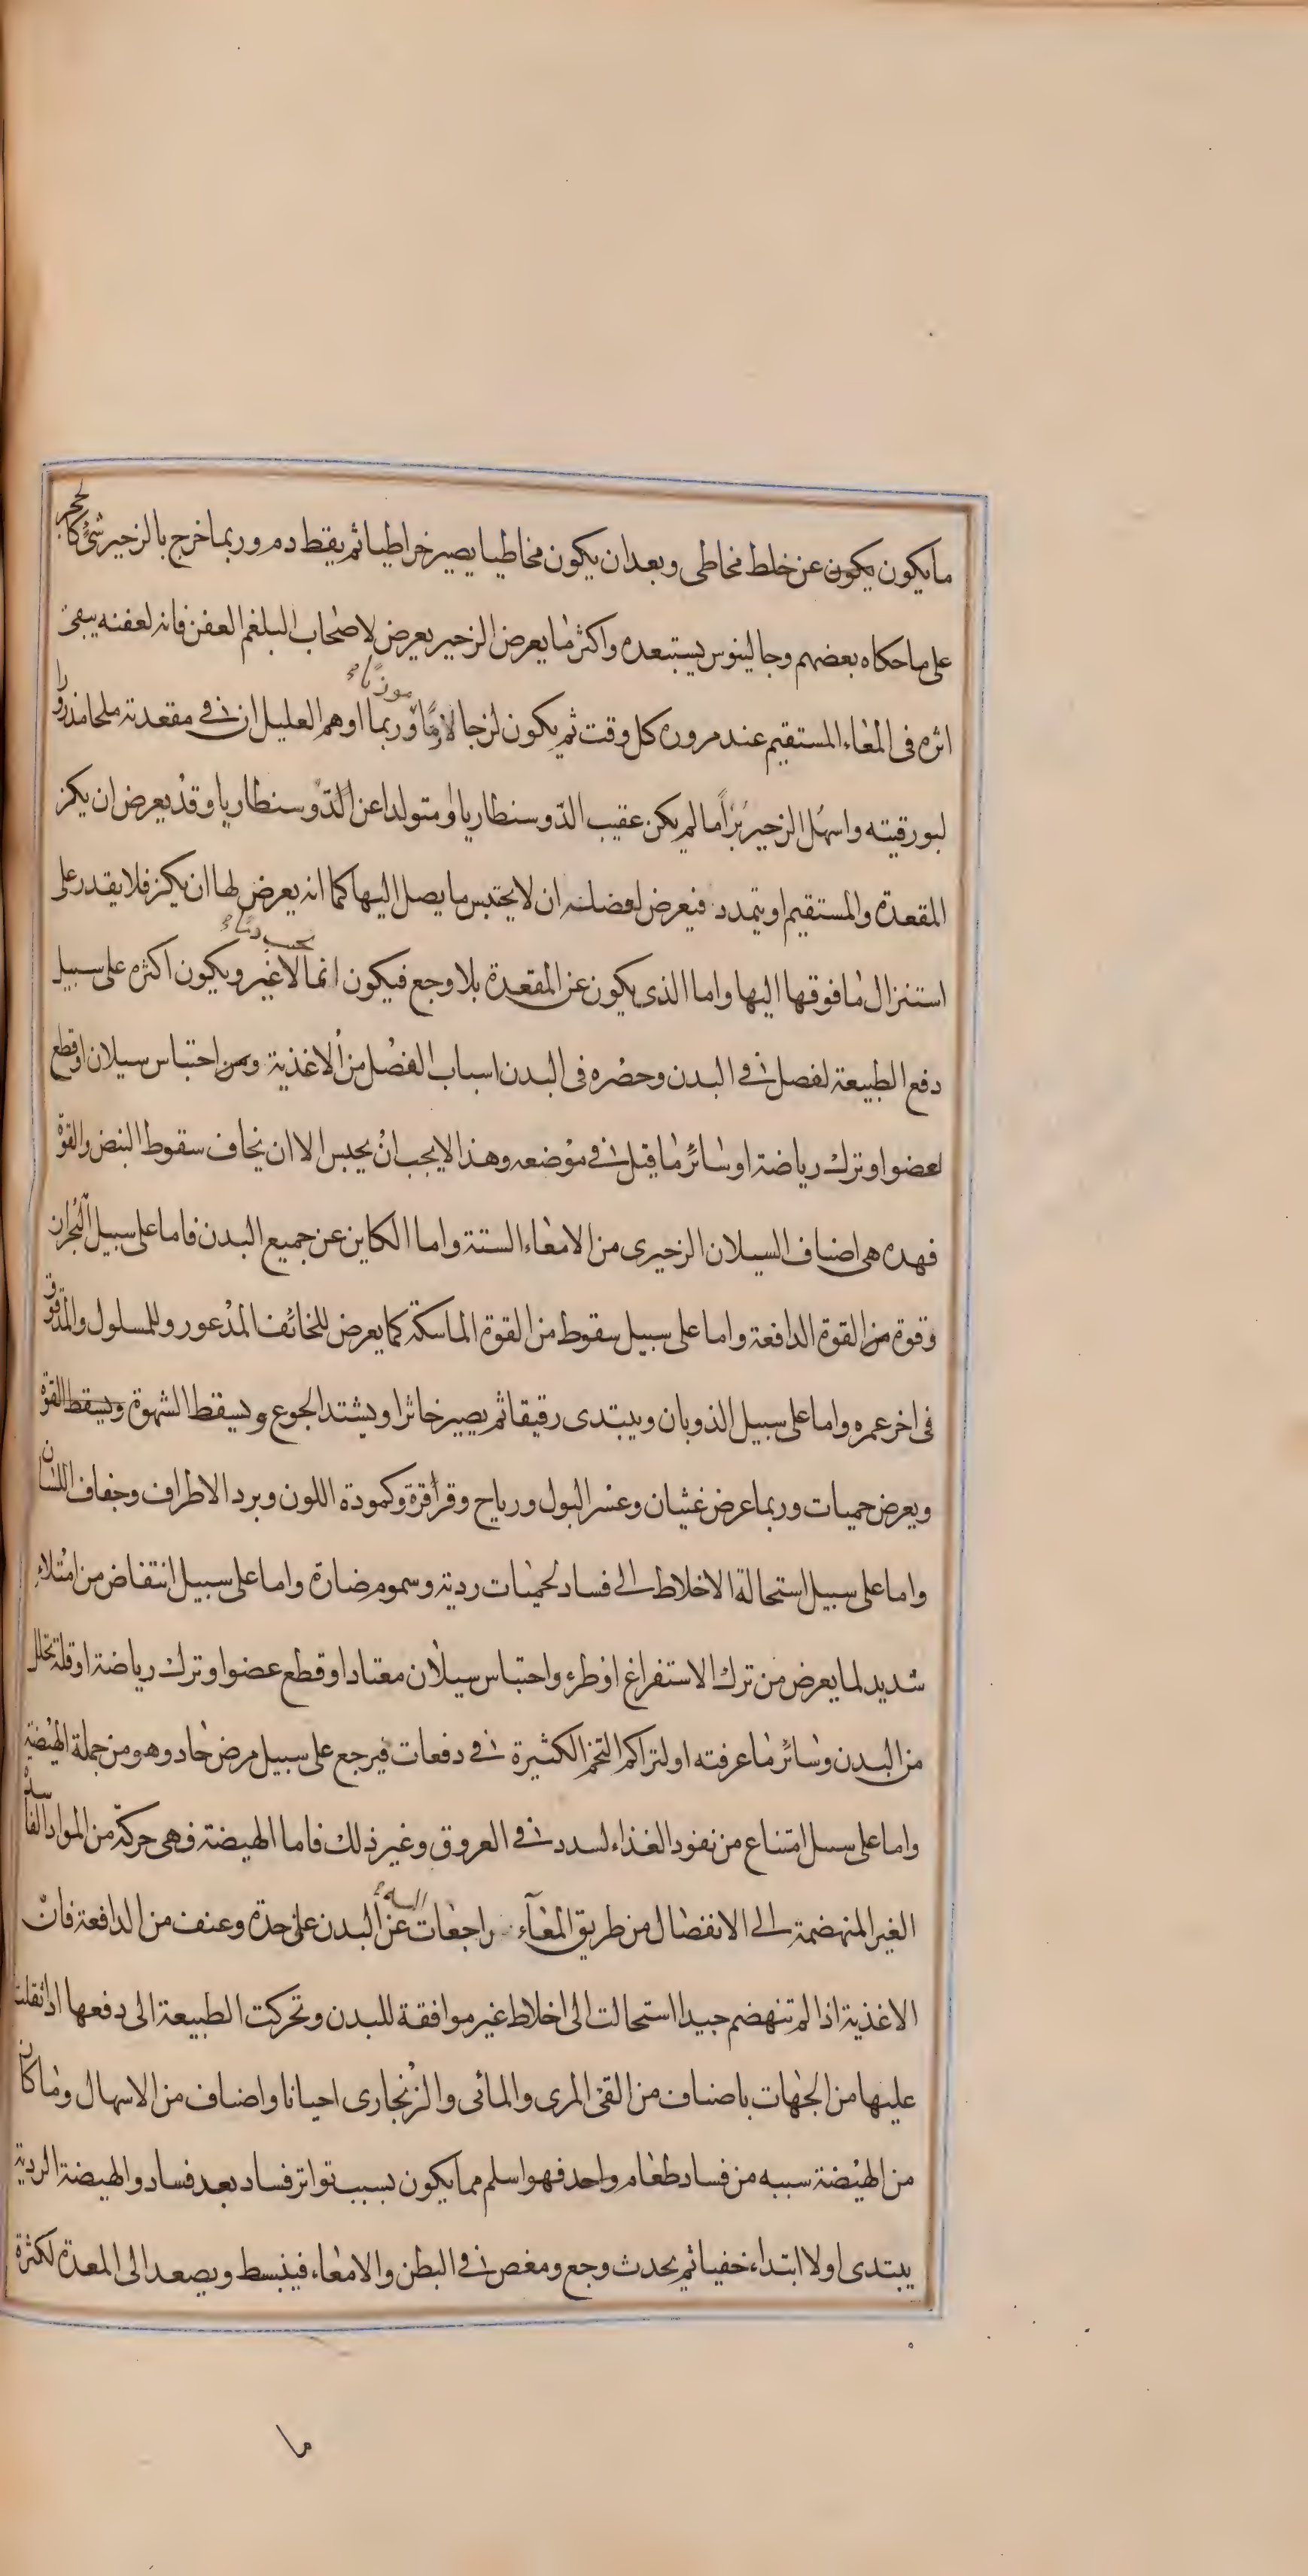 مايكون يكون عن خلط مخاطى وبعد ان يكون مخاطيا يصير خراطيا ثم يقط دم وربما خرج بالزحير شىء كالحجر
على ما حكاه بعضهم وجالينوس يستبعده واكثر ما يعرض الزحير يعرض لاصحاب البلغم العفن فانه لعفنه يبقى
اثره فى المعاء المستقيم عند مروره كل وقت ثم يكون لزجا لازما وربما اوهم العليل ان فى مقعدته ملحا مذرورا
لبورقيته واسهل الزحير برأ ما لم يكن عقيب الدوسنطاريا او متولدا عن الدوسنطاريا وقد يعرض ان يكز
المقعدة والمستقيم او يتمدد فيعرض لعضلته ان لا يحتبس ما يصل اليها كما انه يعرض لها ان يكز فلا يقدر على
استنزال ما فوقها اليها واما الذى يكون عن المقعدة بلا وجع فيكون انما لا غير ويكون اكثره على سبيل
دفع الطبيعة لفصل فى البدن وحصره فى البدن اسباب الفضل من الاغذية ومن احتباس سيلان او قطع
لعضو او ترك رياضة او سائر ما قيل فى موضعه وهذا لا يجب ان يحبس الا ان يخاف سقوط النبض والقوة
فهده هى اصناف السيلان الزحيرى من الامعاء الستة واما الكاين عن جميع البدن فاما على سبيل البحران
وقوة من القوة الدافعة واما على سبيل سقوط من القوة الماسكة كما يعرض للخائف المذعور وللمسلول والمدقوق
فى اخر عمره واما على سبيل الذوبان ويبتدى رقيقا ثم يصير خاثرا ويشتد الجوع ويسقط الشهوة ويسقط القوة
ويعرض حميات وربما عرض غثيان وعسر البول ورياح وقراقرة وكمودة اللون وبرد الاطراف وجفاف اللسان
واما على سبيل استحالة الاخلاط الى فساد لحميات ردية وسموم ضارة واما على سبيل انتفاض من امتلاء
شديد لما يعرض من ترك الاستفراغ او طرء واحتباس سيلان معتاد او قطع عضو او ترك رياضة او قلة تحلل
من البدن وسائر ما عرفته او لتراكم التخم الكثيرة فى دفعات فيرجع على سبيل مرض حاد وهو من جملة الهيضة
واما على سبيل امتناع من نفود الغذاء لسدد فى العروق وغير ذلك فاما الهيضة فهى حركة من المواد الفاسدة
الغير المنهضمة الى الانفصال من طريق المعآء راجعات عن البدن على حدة وعنف من الدافعة فان
الاغذية اذا لم تنهضم جيدا استحالت الى اخلاط غير موافقة للبدن وتحركت الطبيعة الى دفعها اذا ثقلت
عليها من الجهات باصناف من القئ المرى والمائى والزنجارى احيانا واصناف من الاسهال وما كان
من الهيضة سببه من فساد طعام واحد فهو اسلم مما يكون بسبب تواتر فساد بعد فساد والهيضة الردية
يبتدى اولا ابتداء خفيا ثم يحدث وجع ومغص فى البطن والامعاء فينبسط ويصعد الى المعدة لكثرة
ما